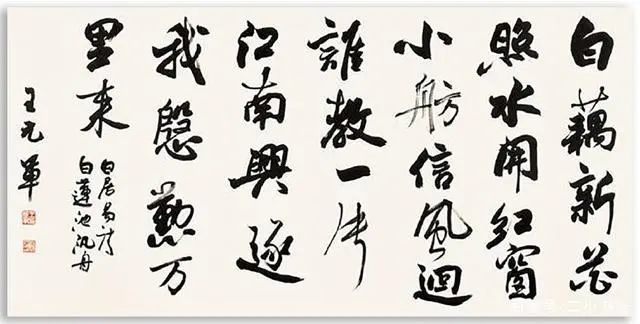 白藕新花
照水開紅窗
小舫信風迴
誰教一片
江南興逐
我慇懃万
里来
白居易詩
白蓮池汎舟
王元軍